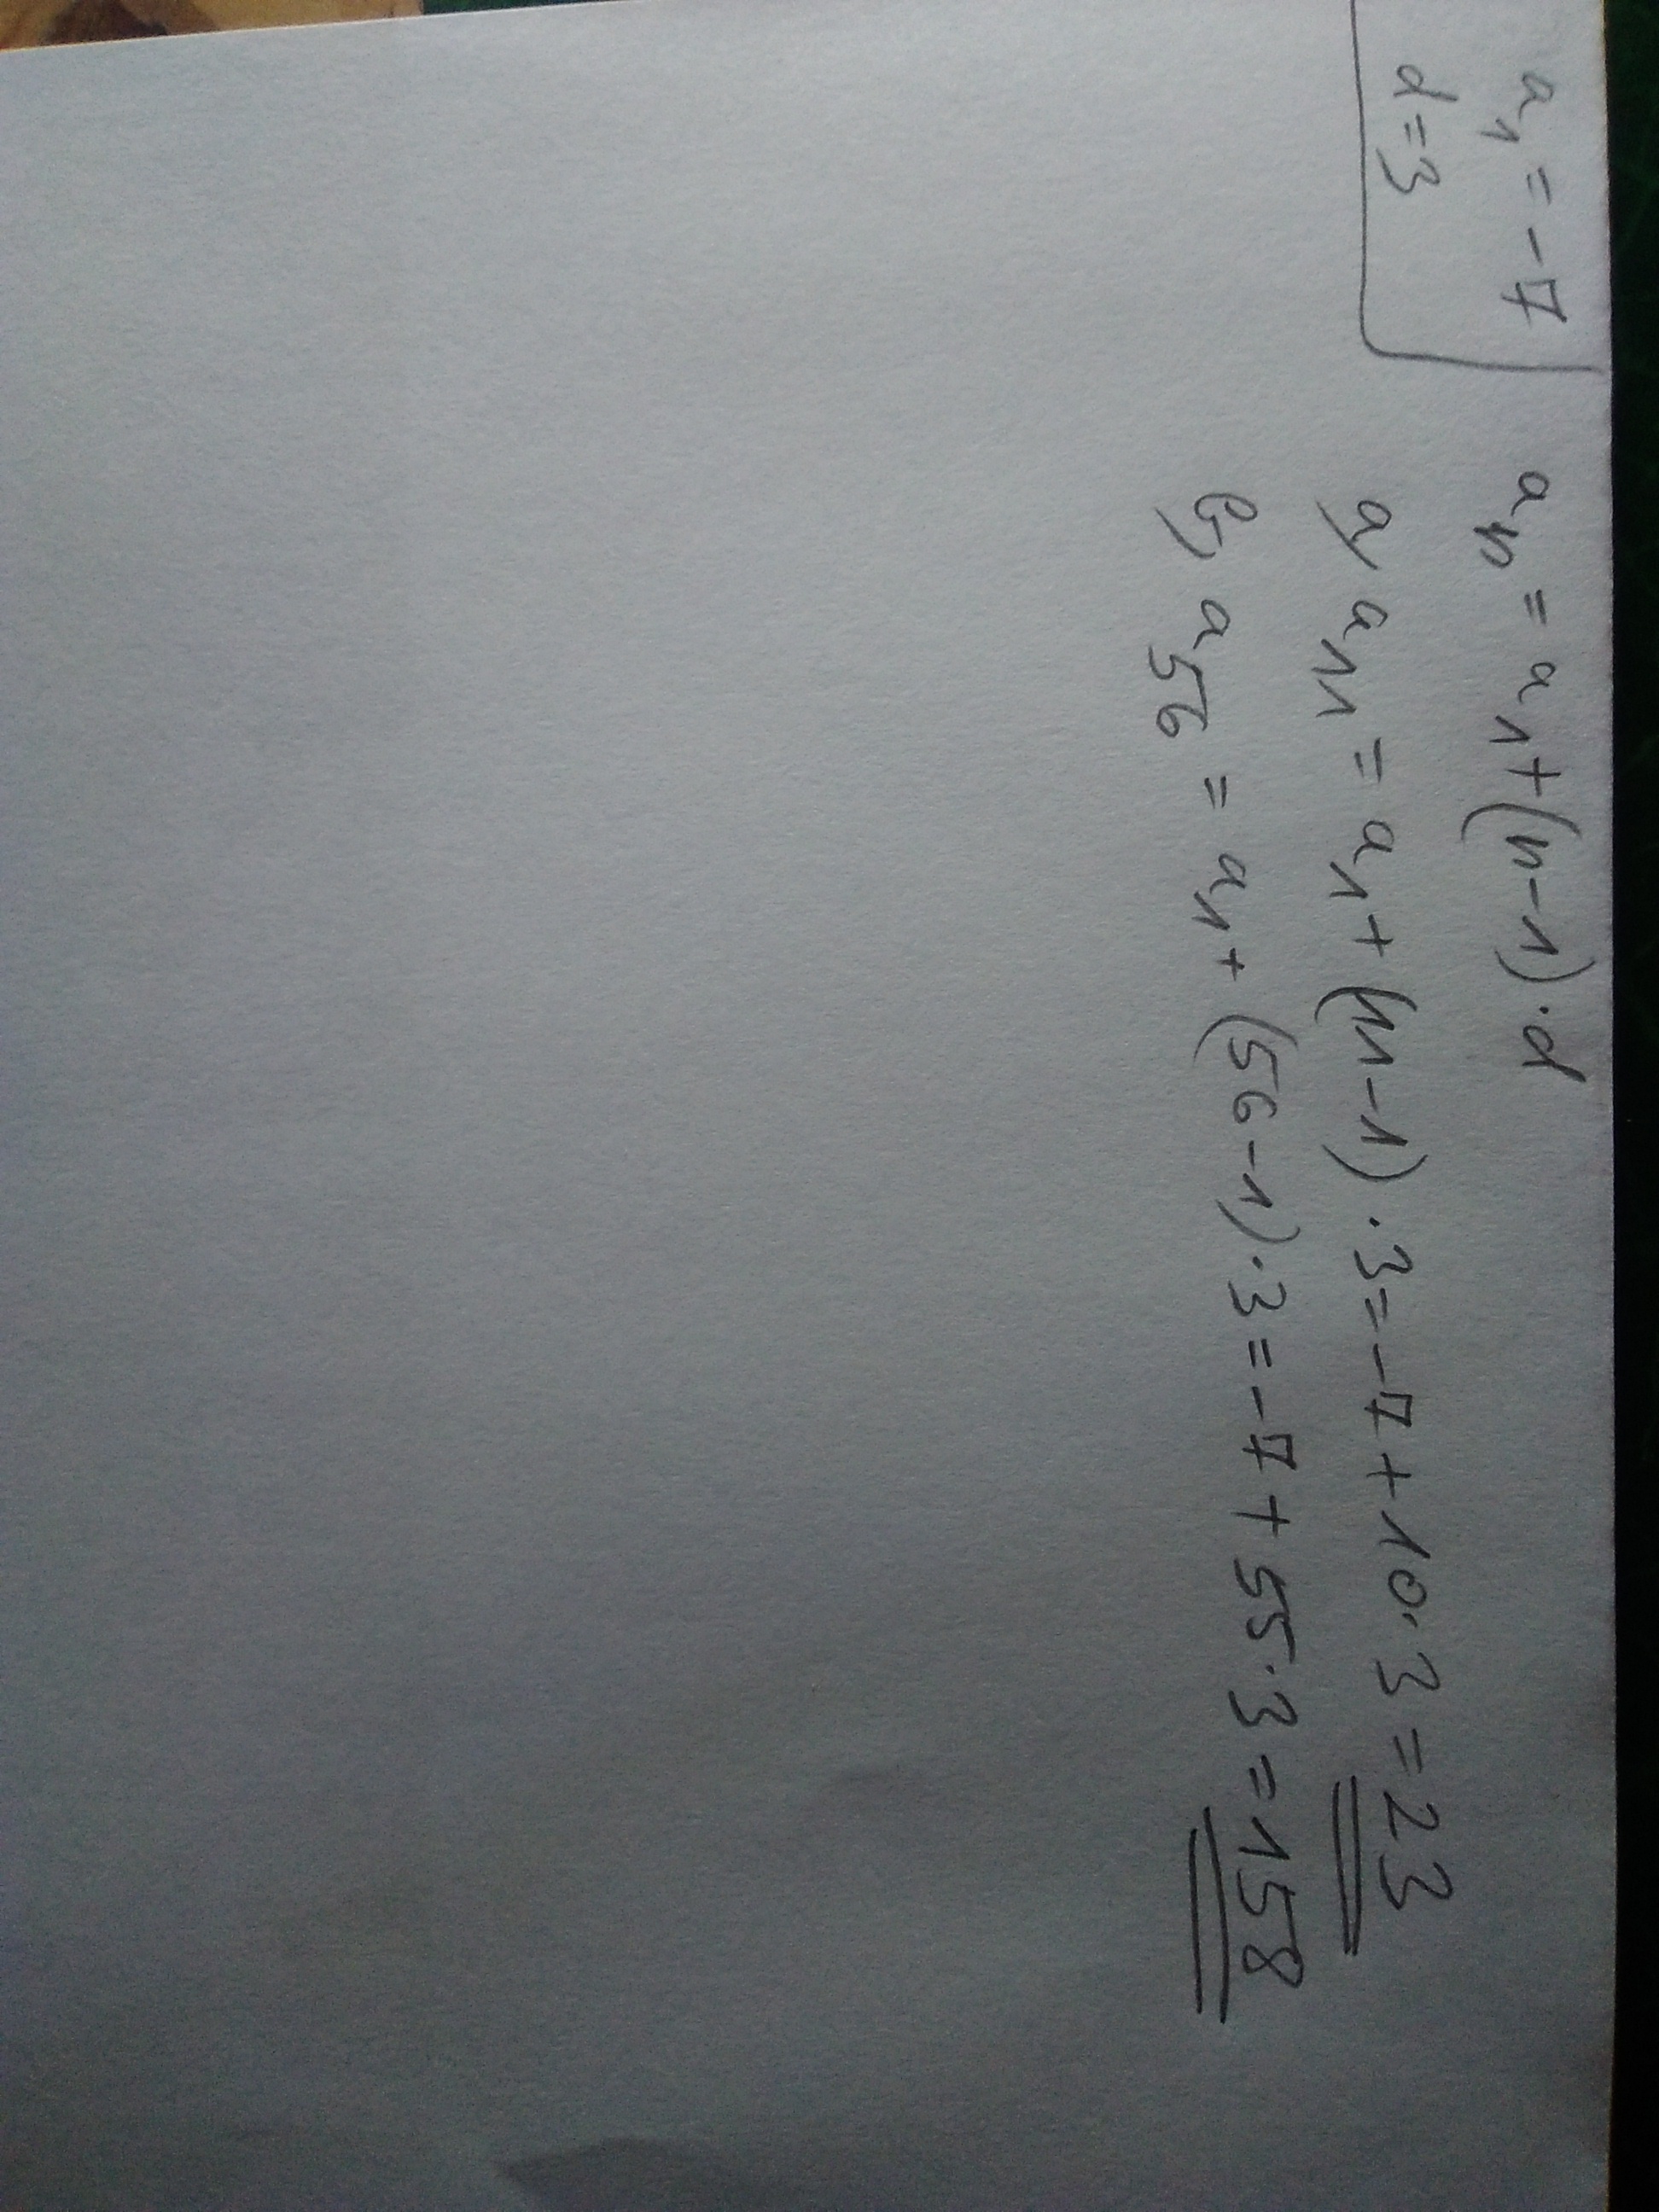 a₁ = -7
d = 3
aₙ = a₁ + (n-1)·d
a) a₁₁ = a₁ + (11-1)·3 = -7 + 10·3 = 23
b) a₅₆ = a₁ + (56-1)·3 = -7 + 55·3 = 158